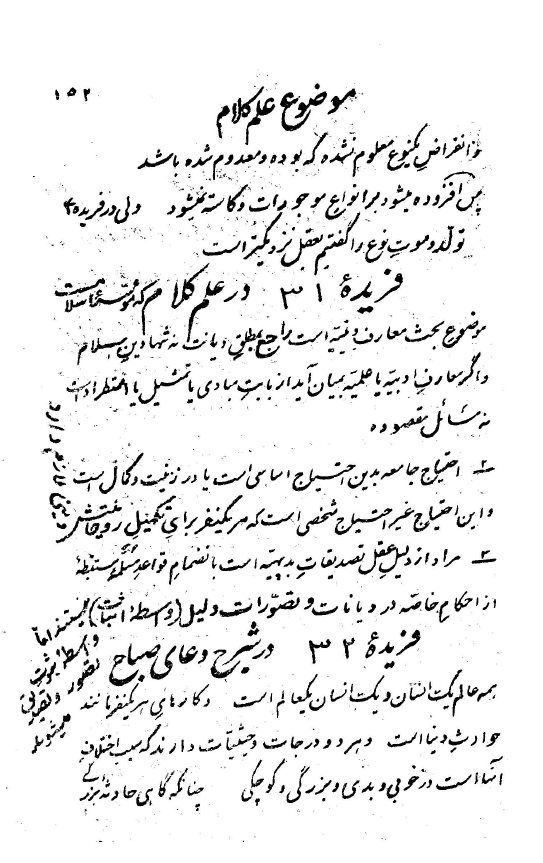 ۱۵۲
موضوع علم کلام
و انقراض یکنوع معلوم نشده که بوده و معدوم شده باشد
پس افزوده میشود بر انواع موجودات و کاسته نمیشود ولی در فریده ۴
تولد و موت نوع را گفتیم بعقل نزدیکتر است
فریدهٔ ۳۱ در علم کلام که
موضوع بحث معارف دینیه است راجع بمطلق دیانت نه تنها دین اسلام
و اگر معارف ادبیه یا علمیه بمیان آید از بابت مبادی یا تمثیل یا استطراد است
نه مسائل مقصوده
۱ــ احتیاج جامعه بدین احتیاج اساسی است یا در زینت و کمال است
و این احتیاج غیر احتیاج شخصی است که هر یکنفر برای تکمیل روحانیتش
دین لازم دارد
۲ــ مراد از دلیل عقل تصدیقات بدیهیه است بانضمام قواعد مسلمهٔ مستنبطهٔ
از احکام خاصه در دیانات و تصورات دلیل (واسطهٔ اثبات)
و واسطهٔ ثبوت
تصور و تصدیق
میشود
فریدهٔ ۳۲ در شرح دعای صباح
همه عالم یک انسان و یک انسان یکعالم است و کارهای هر یکنفر مانند
حوادث دنیا است و هر دو درجات و حیثیات دارند که سبب اختلاف
آنها است در خوبی و بدی و بزرگی و کوچکی چنانکه گاهی حادثه بزرگ